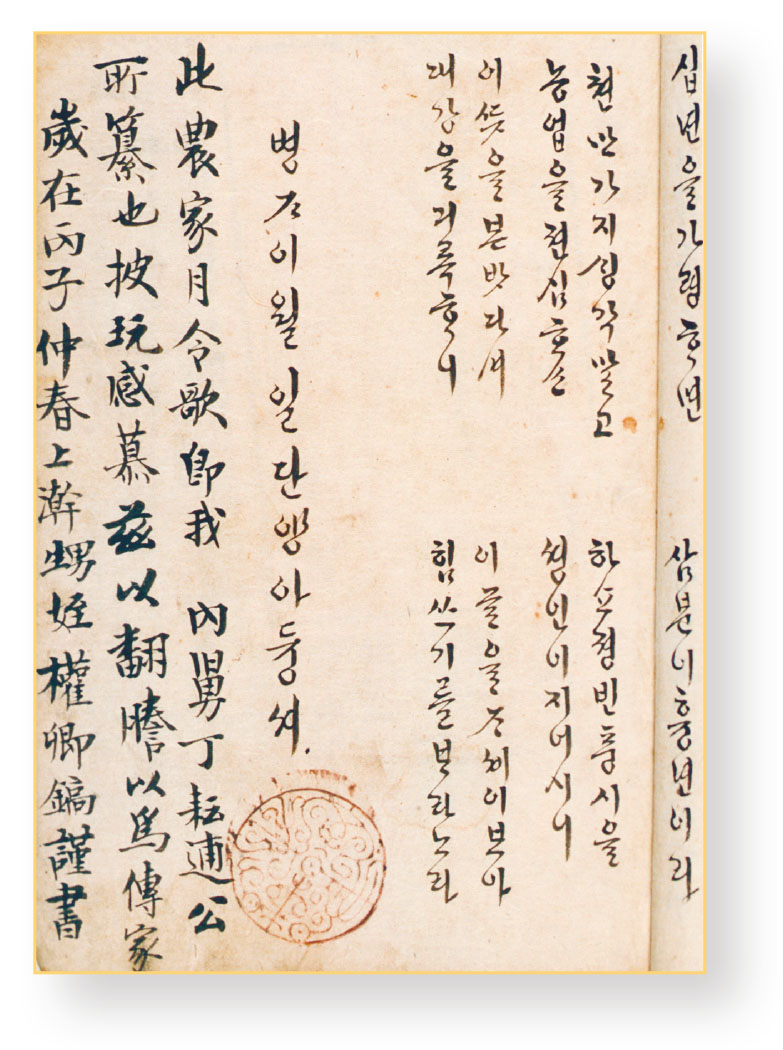 십년을가령ᄒᆞ면 삼분이흉년이라
쳔만가지ᄉᆡᆼ각말고 하쇼졍빈풍시을
농업을젼심ᄒᆞ쇼 셩인이지어시니
이ᄯᅳᆺ을본밧다셔 이글을ᄌᆞ셰이보아
대강을긔록ᄒᆞ니 힘쓰기를ᄇᆞ라노라
병ᄌᆞ이월일단양아듕셔
此農家月令歌卽我 內舅丁耘逋公
所纂也披玩感慕玆以翻謄以爲傳家
歲在丙子仲春上澣甥姪權卿鎬謹書